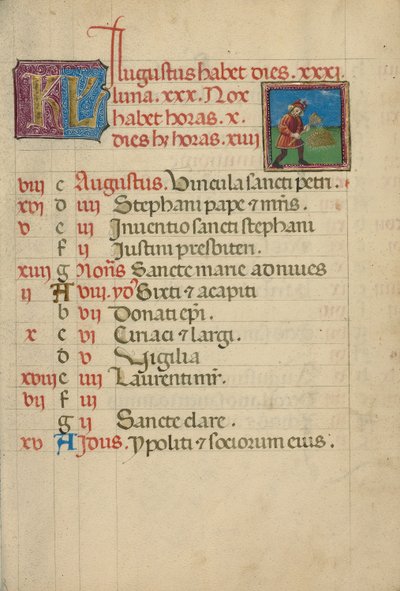 KL
Augustus habet dies .xxxi.
luna .xxx. Nox
habet horas .x.
dies h̄ horas .xiiii
viii c Augustus. Vincula sancti petri.
xvi d iiii Stephani pape ⁊ m̄ris.
v e iii Inuentio sancti stephani
f ii Iustini presbiteri.
xiii g Noñs Sancte marie ad niues
ii A viii. yd⁹ Sixti ⁊ acapiti
b vii Donati ep̄i.
x c vi Ciriaci ⁊ largi.
d v Vigilia
xviii e iiii Laurenti mr̄.
vii f iii
g ii Sancte clare.
xv A Idus. Ypoliti ⁊ sociorum eius.